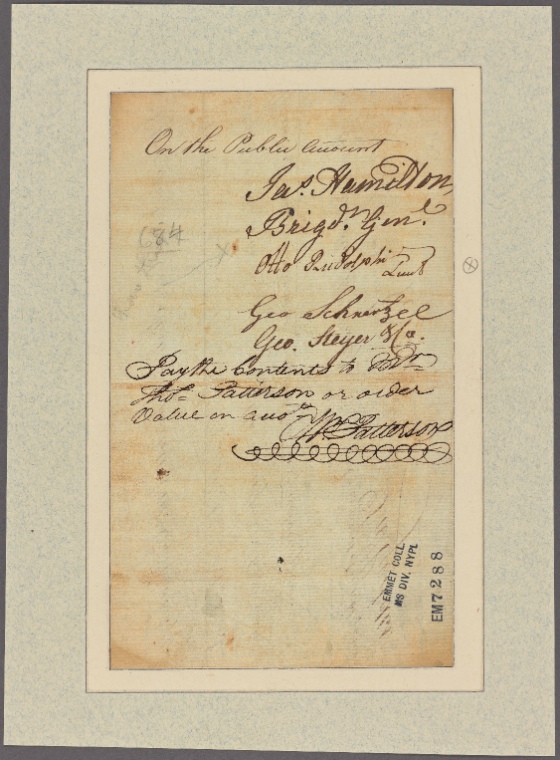 On the Public account
Jas. Hamilton
Brigd.r Genl.
Otto Rudolph
Geo Schnertzell
Geo. Steyer & Co.
Pay the Contents to
Thos. Patterson or order
Value on auot.
Wm Patterson
684
EMMET COLL.
MS DIV. NYPL
EM7288